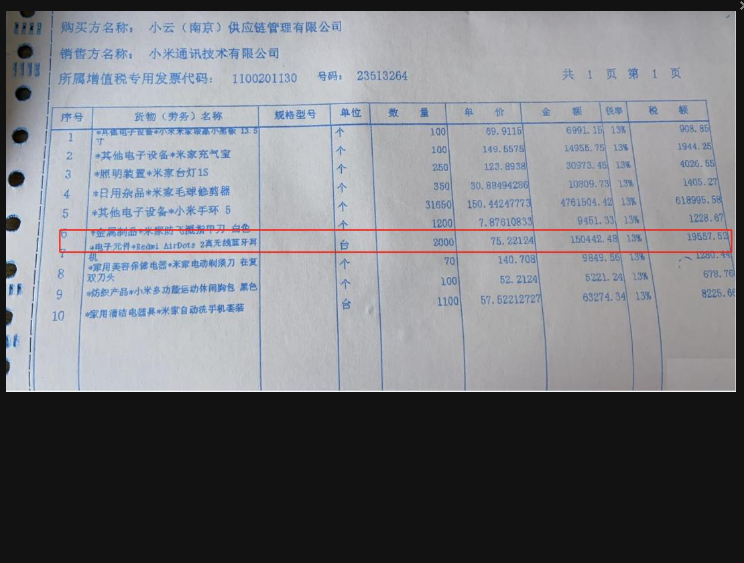 购买方名称： 小云（南京）供应链管理有限公司
销售方名称： 小米通讯技术有限公司
所属增值税专用发票代码： 1100201130 号码： 23513264 共 1 页 第 1 页
序号 货物（劳务）名称 规格型号 单位 数 量 单 价 金 额 税率 税 额
1 *其他电子设备*小米米家液晶小黑板 13.5寸 个 100 69.9115 6991.15 13% 908.85
2 *其他电子设备*米家充气宝 个 100 149.5575 14955.75 13% 1944.25
3 *照明装置*米家台灯1S 个 250 123.8938 30973.45 13% 4026.55
4 *日用杂品*米家毛球修剪器 个 350 30.88494286 10809.73 13% 1405.27
5 *其他电子设备*小米手环 5 个 31650 150.44247773 4761504.42 13% 618995.58
6 *金属制品*米家防飞溅指甲刀 白色 个 1200 7.87610833 9451.33 13% 1228.67
7 *电子元件*Redmi AirDots 2真无线蓝牙耳机 台 2000 75.22124 150442.48 13% 19557.52
8 *家用美容保健电器*米家电动剃须刀 往复双刀头 个 70 140.708 9849.56 13% 1280.44
9 *纺织产品*小米多功能运动休闲胸包 黑色 个 100 52.2124 5221.24 13% 678.76
10 *家用清洁电器具*米家自动洗手机套装 台 1100 57.52212727 63274.34 13% 8225.66